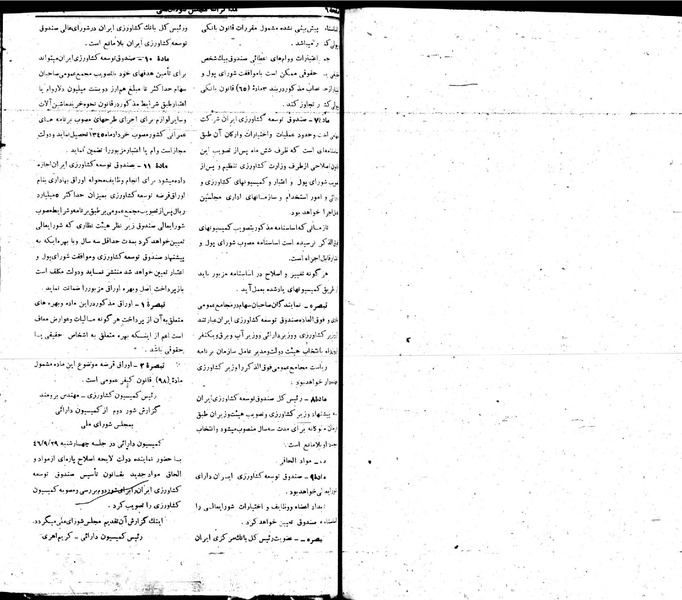 مذاکرات مجلس شورای ملی
صفحه
پیش بینی نشده مشمول مقررات قانون بانکی
میباشد.
ج اعتبارات و وام های اعطائی صندوق بیک شخص
حقوقی ممکن است با موافقت شورای پول و
نصاب مذکور در بند ۳ ماده (۶۵) قانون بانکی
تجاوز کند.
ماده ۷ـ صندوق توسعه کشاورزی ایران شرکت
است و حدود عملیات و اختیارات و ارکان آن طبق
اساسنامه ای است که ظرف شش ماه پس از تصویب این
اصلاحی از طرف وزارت کشاورزی تنظیم و پس از
شورای پول و اعتبار و کمیسیونهای کشاورزی و
و امور استخدام و سازمانهای اداری مجلسین
اجرا خواهد بود.
تا زمانی که اساسنامه مذکور بتصویب کمیسیونهای
فوق الذکر نرسیده است اساسنامه مصوب شورای پول و
قابل اجراء است.
هر گونه تغییر و اصلاح در اساسنامه مزبور باید
از طریق کمیسیونهای یاد شده بعمل آید.
تبصره ـ نمایندگان صاحبان سهام در مجامع عمومی
و فوق العاده صندوق توسعه کشاورزی ایران عبارتند
وزیر کشاورزی و وزیر دارائی و وزیر آب و برق و یکنفر
بانتخاب هیئت دولت و مدیر عامل سازمان برنامه
ریاست مجامع عمومی فوق الذکر را وزیر کشاورزی
خواهد بود.
ماده ۸ـ رئیس کل صندوق توسعه کشاورزی ایران
پیشنهاد وزیر کشاورزی و تصویب هیئت وزیران طبق
برای مدت سه سال منصوب میشود و انتخاب
او بلامانع است.
د ـ مواد الحاقی
ماده ۹ـ صندوق توسعه کشاورزی ایران دارای
خواهد بود.
اعضاء و وظایف و اختیارات شورایعالی را
صندوق تعیین خواهد کرد.
تبصره ـ عضویت رئیس کل بانک مرکزی ایران
و رئیس کل بانک کشاورزی ایران در شورای عالی صندوق
توسعه کشاورزی ایران بلامانع است.
مادۀ ۱۰ـ صندوق توسعه کشاورزی ایران میتواند
برای تأمین هدفهای خود با تصویب مجمع عمومی صاحبان
سهام حداکثر تا مبلغ هزار و دویست میلیون دلار وام یا
اعتبار طبق شرایط مذکور در قانون نحوه خرید ماشین آلات
و سایر لوازم برای اجرای طرحهای مصوب برنامه های
عمرانی کشور مصوب خرداد ماه ۱۳۴۵ تحصیل نماید و دولت
مجاز است وام یا اعتبار مزبور را تضمین نماید.
مادۀ ۱۱ـ صندوق توسعه کشاورزی ایران اجازه
داده میشود برای انجام وظایف محوله اوراق بهاداری بنام
اوراق قرضه توسعه کشاورزی بمیزان حداکثر ۵ میلیارد
ریال پس از تصویب مجمع عمومی بر طبق برنامه و شرایط مصوب
شورایعالی صندوق زیر نظر هیئت نظاری که شورایعالی
تعیین خواهد کرد بمدت حداقل سه سال و با بهره اینکه به
پیشنهاد صندوق توسعه کشاورزی و موافقت شورای پول و
اعتبار تعیین خواهد شد منتشر نماید و دولت مکلف است
بازپرداخت اصل و بهره اوراق مزبور را ضمانت نماید.
تبصره ۱ـ اوراق مذکور در این ماده و بهره های
متعلق به آن از پرداخت هر گونه مالیات و عوارض معاف
است اعم از اینکه بهره متعلق به اشخاص حقیقی یا
حقوقی باشد.
تبصره ۲ـ اوراق قرضه موضوع این ماده مشمول
مادۀ (۹۸) قانون کیفر عمومی است.
رئیس کمیسیون کشاورزی ـ مهندس برومند
گزارش شور دوم از کمیسیون دارائی
بمجلس شورای ملی
کمیسیون دارائی در جلسه چهارشنبه ۴۶/۹/۲۹
با حضور نماینده دولت لایحه اصلاح پاره ای از مواد و
الحاق مواد جدید بقانون تأسیس صندوق توسعه
کشاورزی ایران را برای شور دوم بررسی و مصوبه کمیسیون
کشاورزی را تصویب کرد.
اینک گزارش آن تقدیم مجلس شورای ملی میگردد.
رئیس کمیسیون دارائی ـ کریم اهری